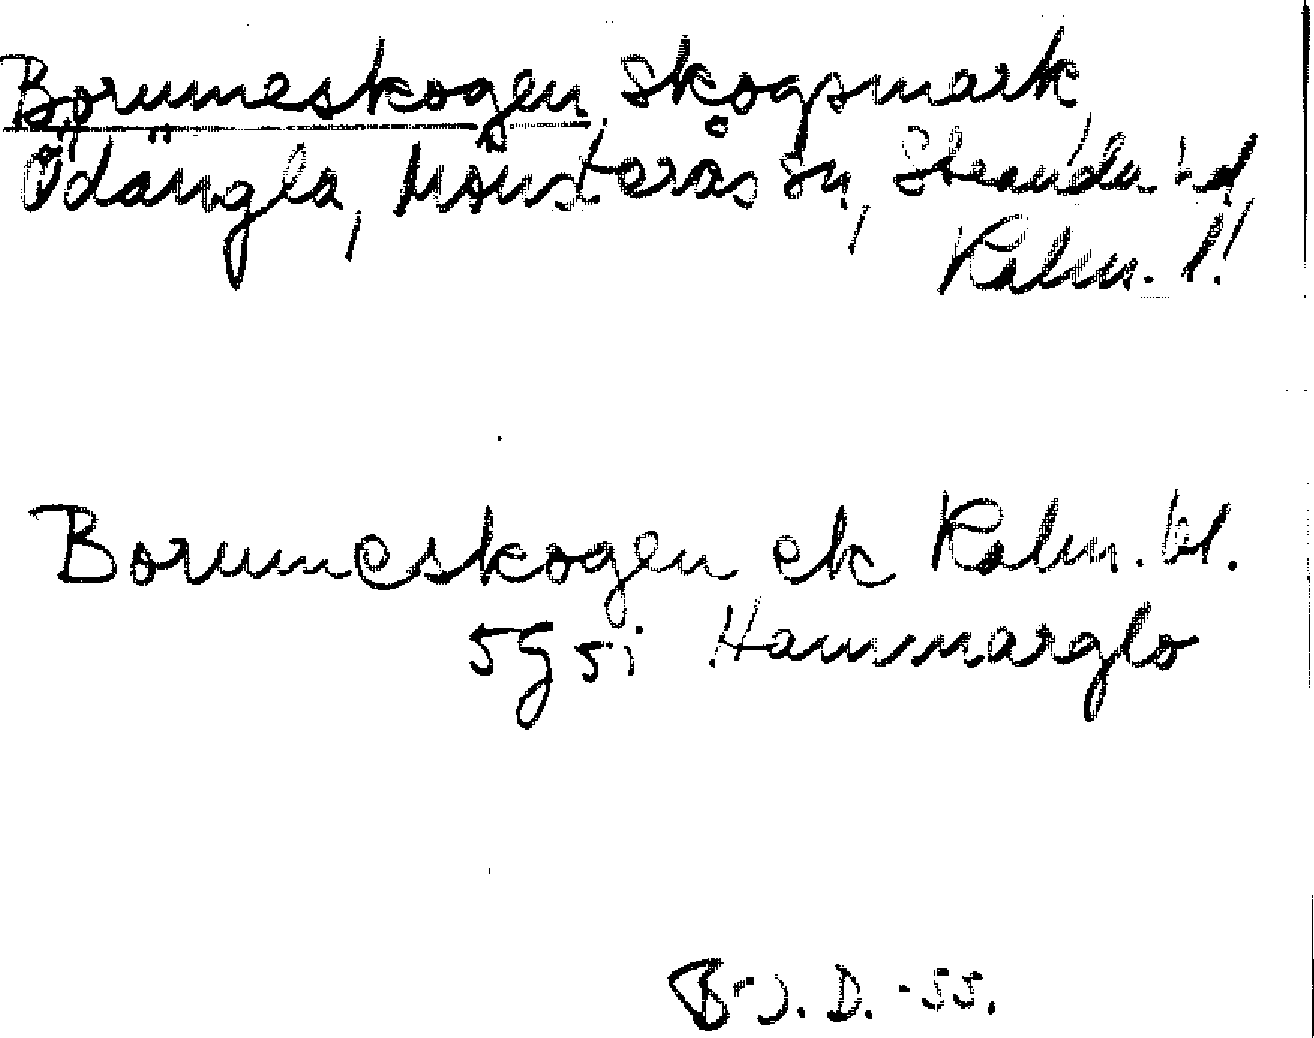 Borumeskogen skogsmark
Ödängla, Mönsterås sn, Stranda hd
Kalm. l.
Borumeskogen ek Kalm. bl.
5G5i Hammarglo
B-J. D. -55.